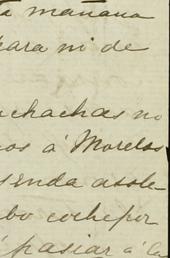 ta mañana
para ni de
uchachas no
os á Morelos
senda asole
bo coche por
pasiar á la